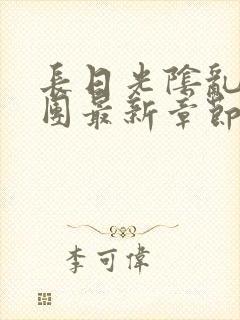 長日光陰亂
團最新章節
李可偉